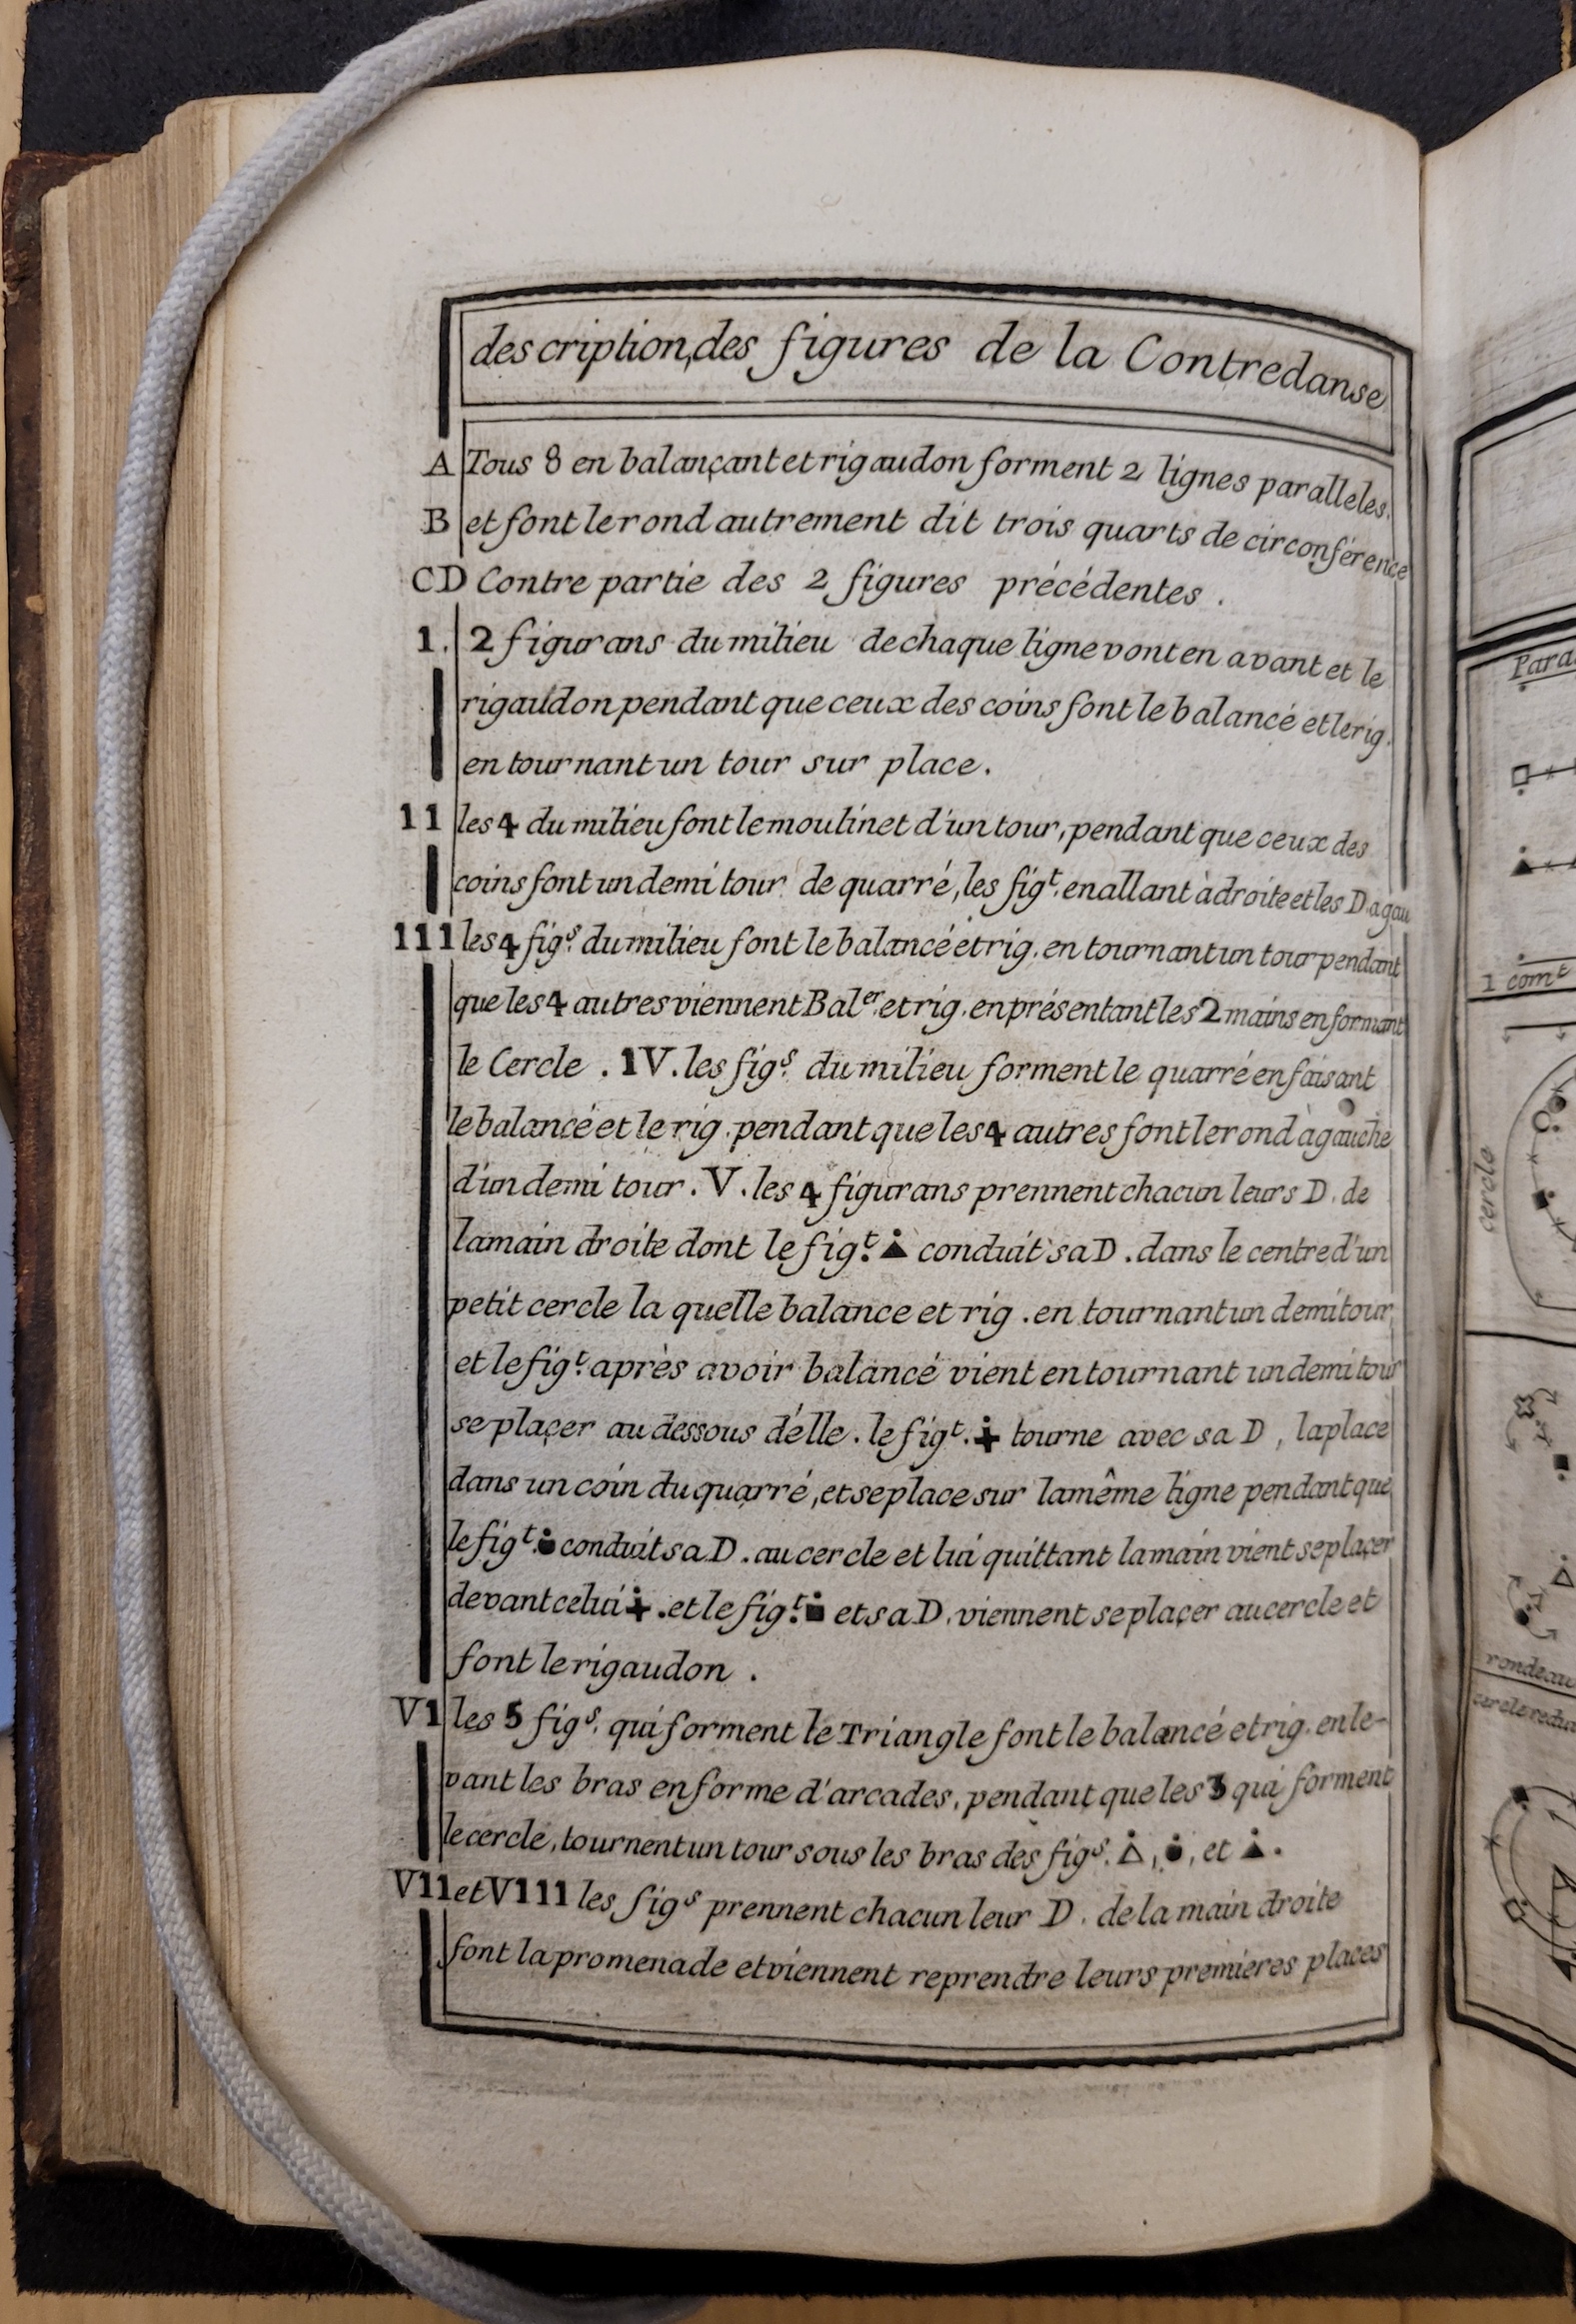 description, des figures de la Contredanse
A Tous 8 en balançant et rigaudon forment 2 lignes paralleles.
B et font le rond autrement dit trois quarts de circonférence
CD Contre partie des 2 figures précédentes .
1. 2 figurans du milieu de chaque ligne vont en avant et le
rigaudon pendant que ceux des coins font le balancé et le rig.
en tournant un tour sur place.
11 les 4 du milieu font le moulinet d'un tour, pendant que ceux des
coins font un demi tour de quarré, les figt. en allant à droite et les D. a gau
111 les 4 figs. du milieu font le balancé et rig. en tournant un tour pendant
que les 4 autres viennent Baler. et rig. en présentant les 2 mains en formant
le Cercle . 1V. les figs. du milieu forment le quarré en faisant
le balancé et le rig. pendant que les 4 autres font le rond a gauche
d'un demi tour. V. les 4 figurans prennent chacun leurs D. de
la main droite dont le figt. ▲ conduit sa D. dans le centre d'un
petit cercle la quelle balance et rig. en tournant un demi tour
et le figt. après avoir balancé vient en tournant un demi tour
se plaçer au dessous d'élle. le figt. ✚ tourne avec sa D, la place
dans un coin du quarré, et se place sur la même ligne pendant que
le figt. ● conduit sa D. au cercle et lui quittant la main vient se plaçer
devant celui ✚. et le figt. ■ et sa D. viennent se plaçer au cercle et
font le rigaudon .
V1 les 5 figs. qui forment le Triangle font le balancé et rig. en le-
vant les bras en forme d'arcades, pendant que les 3 qui forment
le cercle, tournent un tour sous les bras des figs. △, ●, et ▲.
V11 et V111 les figs prennent chacun leur D. de la main droite
font la promenade et viennent reprendre leurs premieres places
Para
1 comt
cercle
rondeau